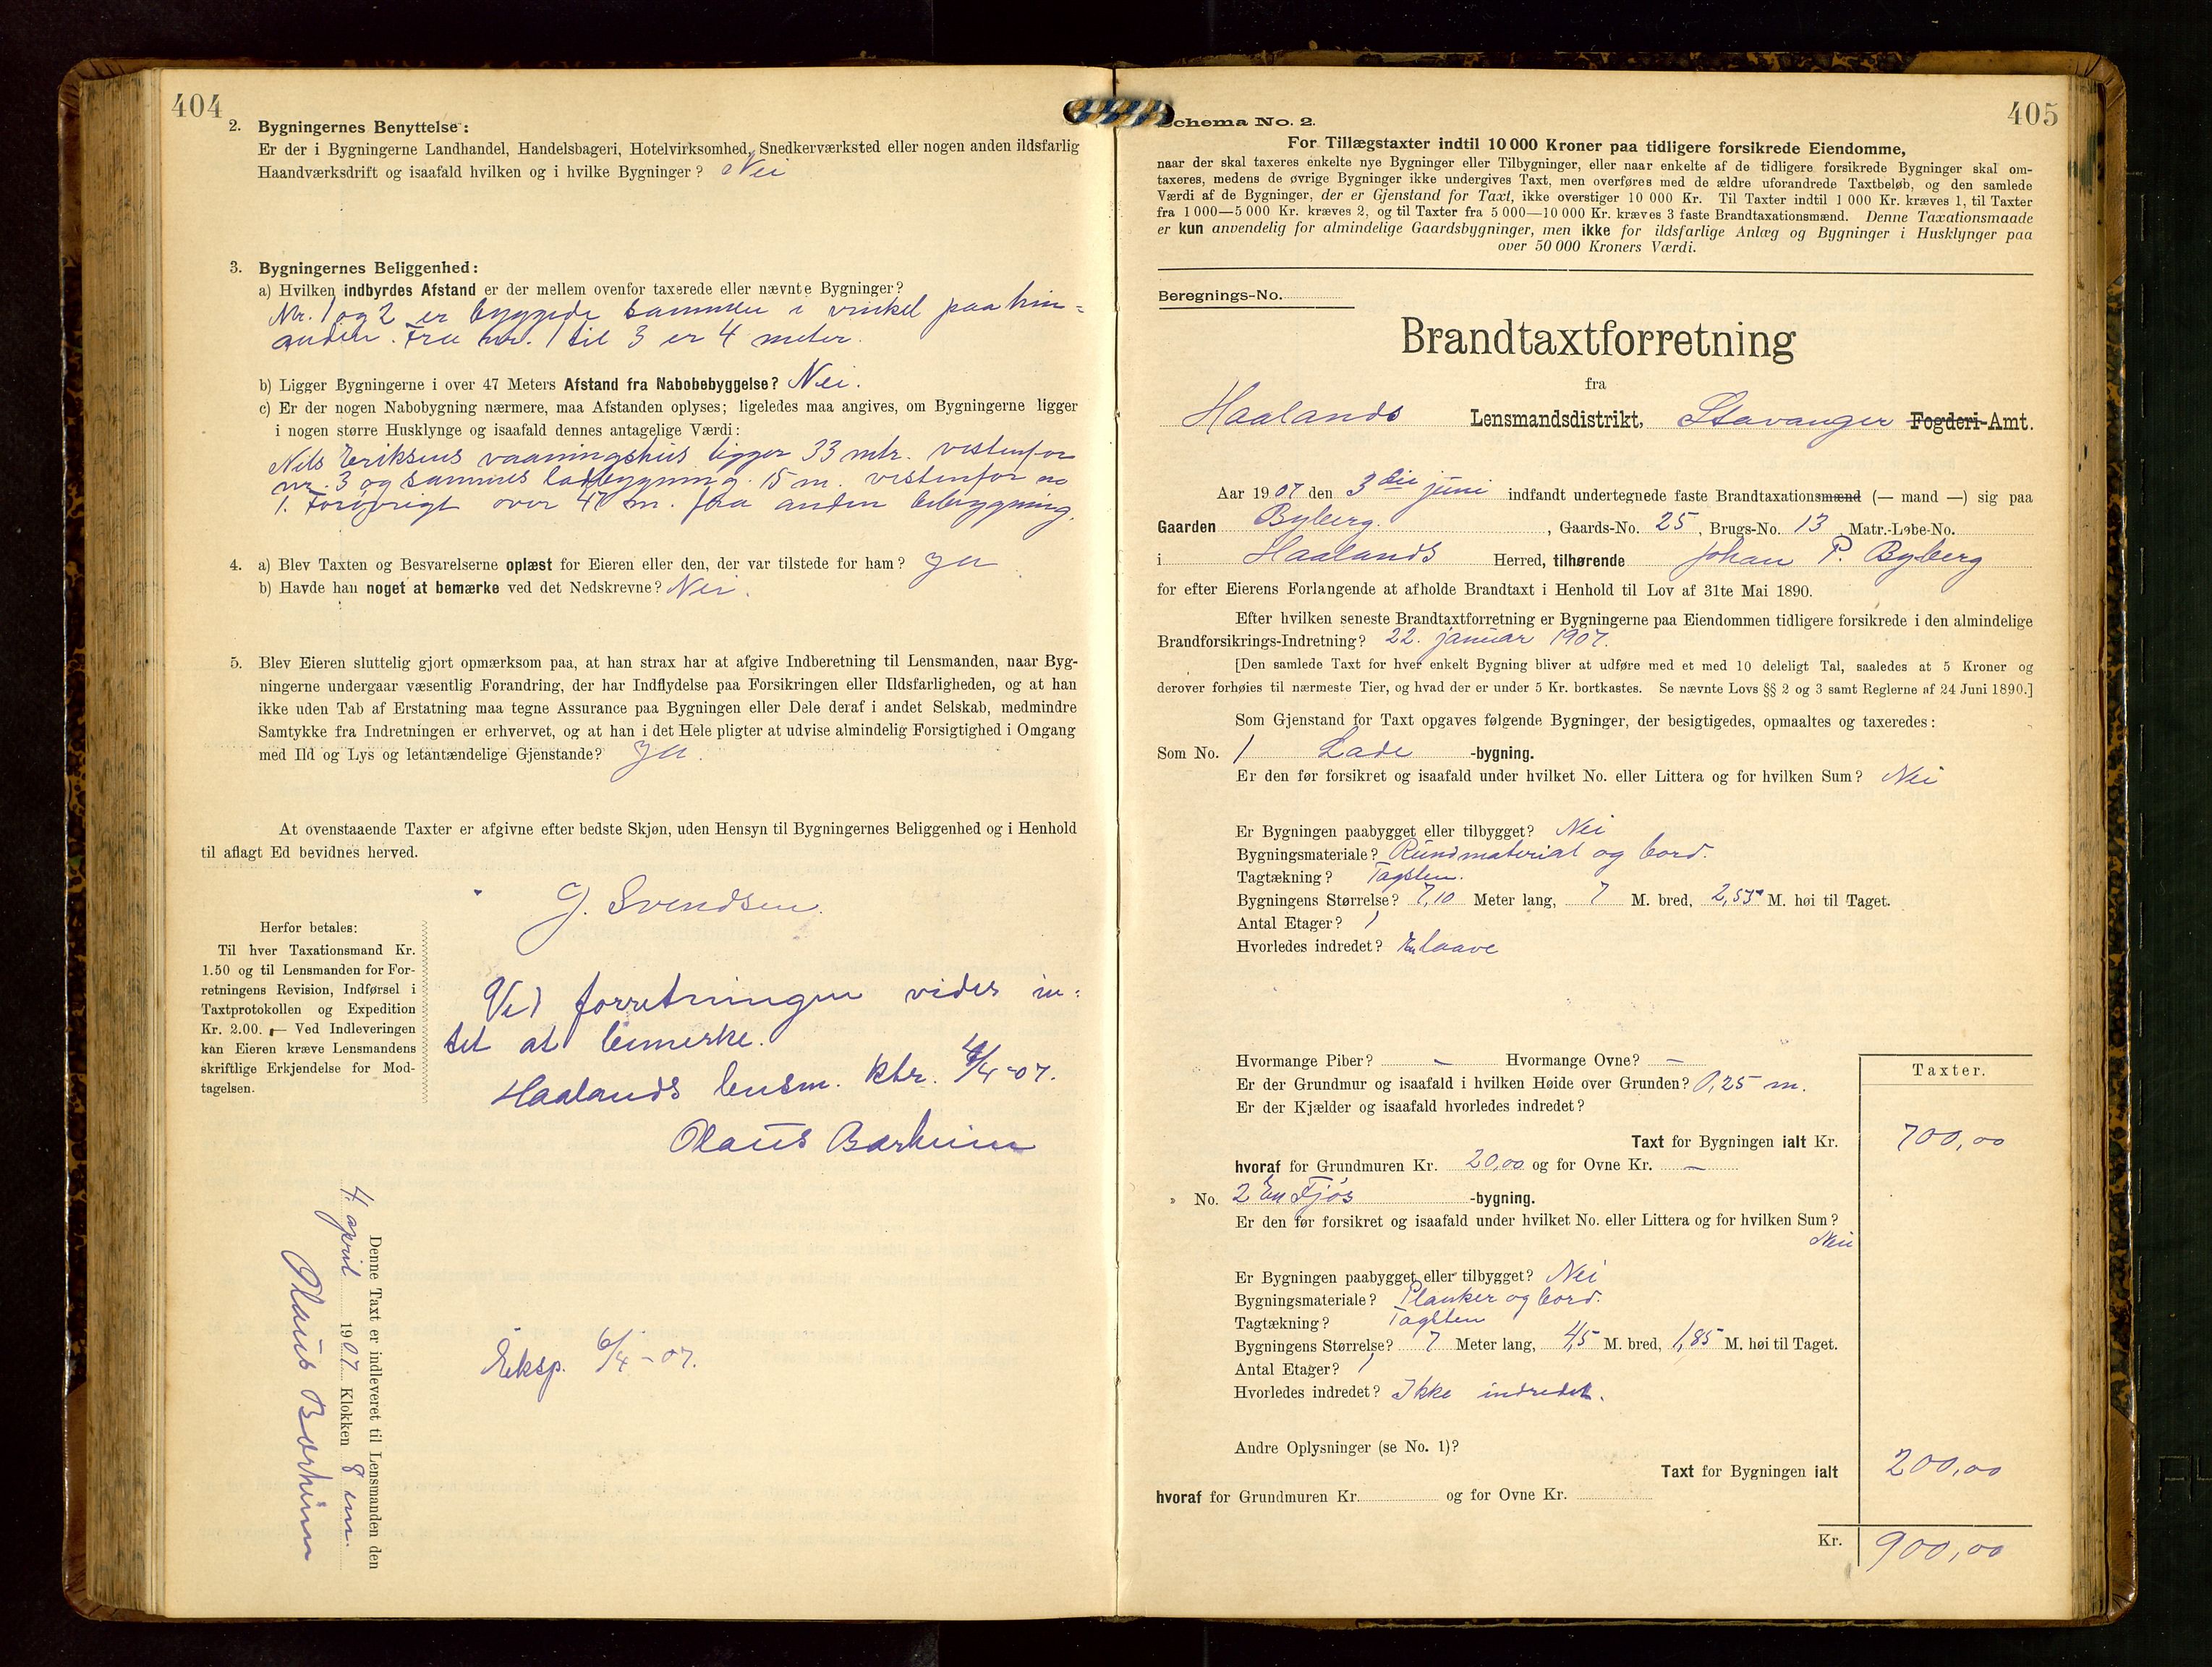 404
2. Bygningernes Benyttelse:
Er der i Bygningerne Landhandel, Handelsbageri, Hotelvirksomhed, Snedkerværksted eller nogen anden ildsfarlig
Haandværksdrift og isaafald hvilken og i hvilke Bygninger? Nei
3. Bygningernes Beliggenhed:
a) Hvilken indbyrdes Afstand er der mellem ovenfor taxerede eller nævnte Bygninger?
Nr. 1 og 2 er byggede sammen i vinkel paa hin=
anden. Fra nr. 1 til 3 er 4 meter.
b) Ligger Bygningerne i over 47 Meters Afstand fra Nabobebyggelse? Nei.
c) Er der nogen Nabobygning nærmere, maa Afstanden oplyses; ligeledes maa angives, om Bygningerne ligger
i nogen større Husklynge og isaafald dennes antagelige Værdi:
Nils Eriksens vaaningshus ligger 33 mtr. vestenfor
nr. 3 og sammes ladebygning 15 m. vestenfor no
1. Forøvrigt over 47 m. fra anden bebyggning.
4. a) Blev Taxten og Besvarelserne oplæst for Eieren eller den, der var tilstede for ham? Ja
b) Havde han noget at bemærke ved det Nedskrevne? Nei.
5. Blev Eieren sluttelig gjort opmærksom paa, at han strax har at afgive Indberetning til Lensmanden, naar Byg-
ningerne undergaar væsentlig Forandring, der har Indflydelse paa Forsikringen eller Ildsfarligheden, og at han
ikke uden Tab af Erstatning maa tegne Assurance paa Bygningen eller Dele deraf i andet Selskab, medmindre
Samtykke fra Indretningen er erhvervet, og at han i det Hele pligter at udvise almindelig Forsigtighed i Omgang
med Ild og Lys og letantændelige Gjenstande? Ja.
At ovenstaaende Taxter er afgivne efter bedste Skjøn, uden Hensyn til Bygningernes Beliggenhed og i Henhold
til aflagt Ed bevidnes herved.
J. Svendsen.
Herfor betales:
Til hver Taxationsmand Kr.
1.50 og til Lensmanden for For-
retningens Revision, Indførsel i
Taxtprotokollen og Expedition
Kr. 2.00. — Ved Indleveringen
kan Eieren kræve Lensmandens
skriftlige Erkjendelse for Mod-
tagelsen.
Ved forretningen vides in=
tet at bemerke.
Haalands lensm. ktr. 4/4-07.
Olaus Barheim
Denne Taxt er indleveret til Lensmanden den
4. april 1907 Klokken 8 em.
Olaus Barheim
Eksp. 6/4-07.
405
Schema No. 2.
For Tillægstaxter indtil 10 000 Kroner paa tidligere forsikrede Eiendomme,
naar der skal taxeres enkelte nye Bygninger eller Tilbygninger, eller naar enkelte af de tidligere forsikrede Bygninger skal om-
taxeres, medens de øvrige Bygninger ikke undergives Taxt, men overføres med de ældre uforandrede Taxtbeløb, og den samlede
Værdi af de Bygninger, der er Gjenstand for Taxt, ikke overstiger 10 000 Kr. Til Taxter indtil 1 000 Kr. kræves 1, til Taxter
fra 1 000—5 000 Kr. kræves 2, og til Taxter fra 5 000—10 000 Kr. kræves 3 faste Brandtaxationsmænd. Denne Taxationsmaade
er kun anvendelig for almindelige Gaardsbygninger, men ikke for ildsfarlige Anlæg og Bygninger i Husklynger paa
over 50 000 Kroners Værdi.
Beregnings-No.
Brandtaxtforretning
fra
Haalands Lensmandsdistrikt, Stavanger Fogderi-Amt.
Aar 1907 den 3die juni indfandt undertegnede faste Brandtaxationsmænd (— mand —) sig paa
Gaarden Byberg. , Gaards-No. 25, Brugs-No. 13 Matr.-Løbe-No.
i Haalands Herred, tilhørende Johan P. Byberg
for efter Eierens Forlangende at afholde Brandtaxt i Henhold til Lov af 31te Mai 1890.
Efter hvilken seneste Brandtaxtforretning er Bygningerne paa Eiendommen tidligere forsikrede i den almindelige
Brandforsikrings-Indretning? 22. januar 1907.
[Den samlede Taxt for hver enkelt Bygning bliver at udføre med et med 10 deleligt Tal, saaledes at 5 Kroner og
derover forhøies til nærmeste Tier, og hvad der er under 5 Kr. bortkastes. Se nævnte Lovs §§ 2 og 3 samt Reglerne af 24 Juni 1890.]
Som Gjenstand for Taxt opgaves følgende Bygninger, der besigtigedes, opmaaltes og taxeredes:
Som No. 1 Lade -bygning.
Er den før forsikret og isaafald under hvilket No. eller Littera og for hvilken Sum? Nei
Er Bygningen paabygget eller tilbygget? Nei
Bygningsmateriale? Rundmaterial og bord.
Tagtækning? Tagsten.
Bygningens Størrelse? 7,10 Meter lang, 7 M. bred, 2,55 M. høi til Taget.
Antal Etager? 1
Hvorledes indredet? En laave
Hvormange Piber? — Hvormange Ovne? —
Er der Grundmur og isaafald i hvilken Høide over Grunden? 0,25 m.
Er der Kjælder og isaafald hvorledes indredet?
Taxter.
Taxt for Bygningen ialt Kr. 700,00
hvoraf for Grundmuren Kr. 20,00 og for Ovne Kr. —
» No. 2 En Fjøs -bygning.
Er den før forsikret og isaafald under hvilket No. eller Littera og for hvilken Sum?
Nei
Er Bygningen paabygget eller tilbygget? Nei
Bygningsmateriale? Planker og bord.
Tagtækning? Tagsten
Bygningens Størrelse? 7 Meter lang, 4,5 M. bred, 1,85 M. høi til Taget.
Antal Etager? 1
Hvorledes indredet? Ikke indredet.
Andre Oplysninger (se No. 1)?
Taxt for Bygningen ialt 200,00
hvoraf for Grundmuren Kr. og for Ovne Kr.
Kr. 900,00